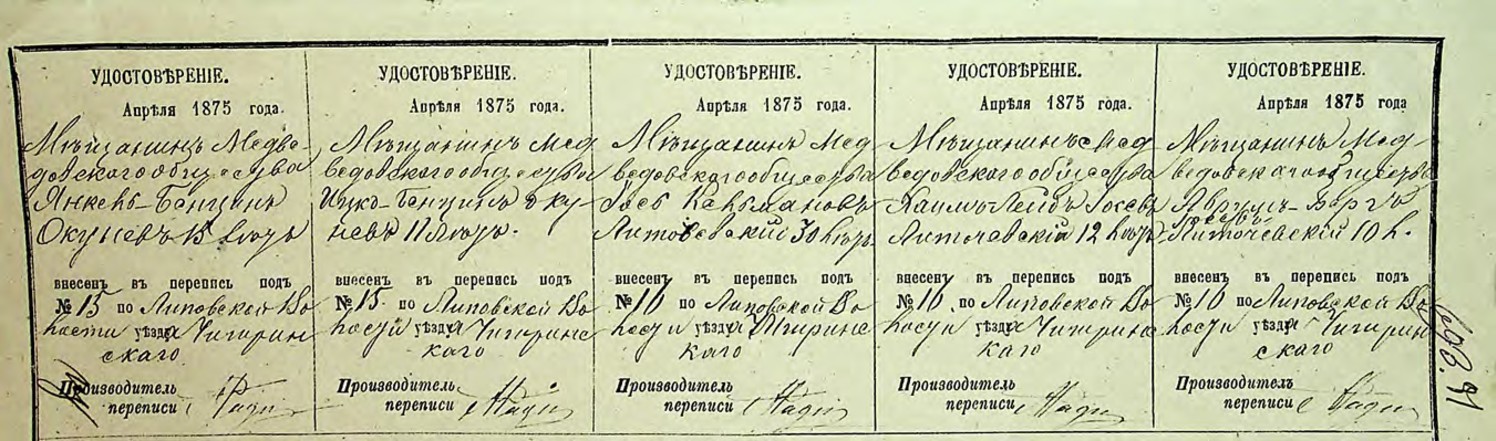 УДОСТОВѢРЕНІЕ.
Апрѣля 1875 года.
Мѣщанинъ Медве-
довскаго общества
Янкель-Бенционъ
Окуневъ 15 лѣтъ
внесенъ въ перепись подъ
№ 15 по Липовской Во
лости уѣзда Чигирин
скаго
Производитель
переписи
УДОСТОВѢРЕНІЕ.
Апрѣля 1875 года.
Мѣщанинъ Мед
ведовскаго общества
Ицко-Бенционъ Оку
невъ 11 лѣтъ.
внесенъ въ перепись подъ
№ 15. по Липовской Во
лости уѣзда Чигиринс
каго
Производитель
переписи
УДОСТОВѢРЕНІЕ.
Апрѣля 1875 года.
Мѣщанинъ Мед
ведовскаго общества
Іось Кельмановъ
30 лѣтъ
внесенъ въ перепись подъ
№ 16 по Липовской Во
лости уѣзда Чигиринс
каго
Производитель
переписи
УДОСТОВѢРЕНІЕ.
Апрѣля 1875 года.
Мѣщанинъ Мед
ведовскаго общества
Хаимъ Лейбъ Іосевъ
Литочевскій 12 лѣтъ
внесенъ въ перепись подъ
№ 16. по Липовской Во
лости уѣзда Чигиринс
каго
Производитель
переписи
УДОСТОВѢРЕНІЕ.
Апрѣля 1875 года
Мѣщанинъ Мед-
ведовскаго общества
Аврумъ-Беръ
Іосевъ
Литочевскій 10 л.
внесенъ въ перепись подъ
№ 16 по Липовской Во
лости уѣзда Чигирин
скаго
Производитель
переписи